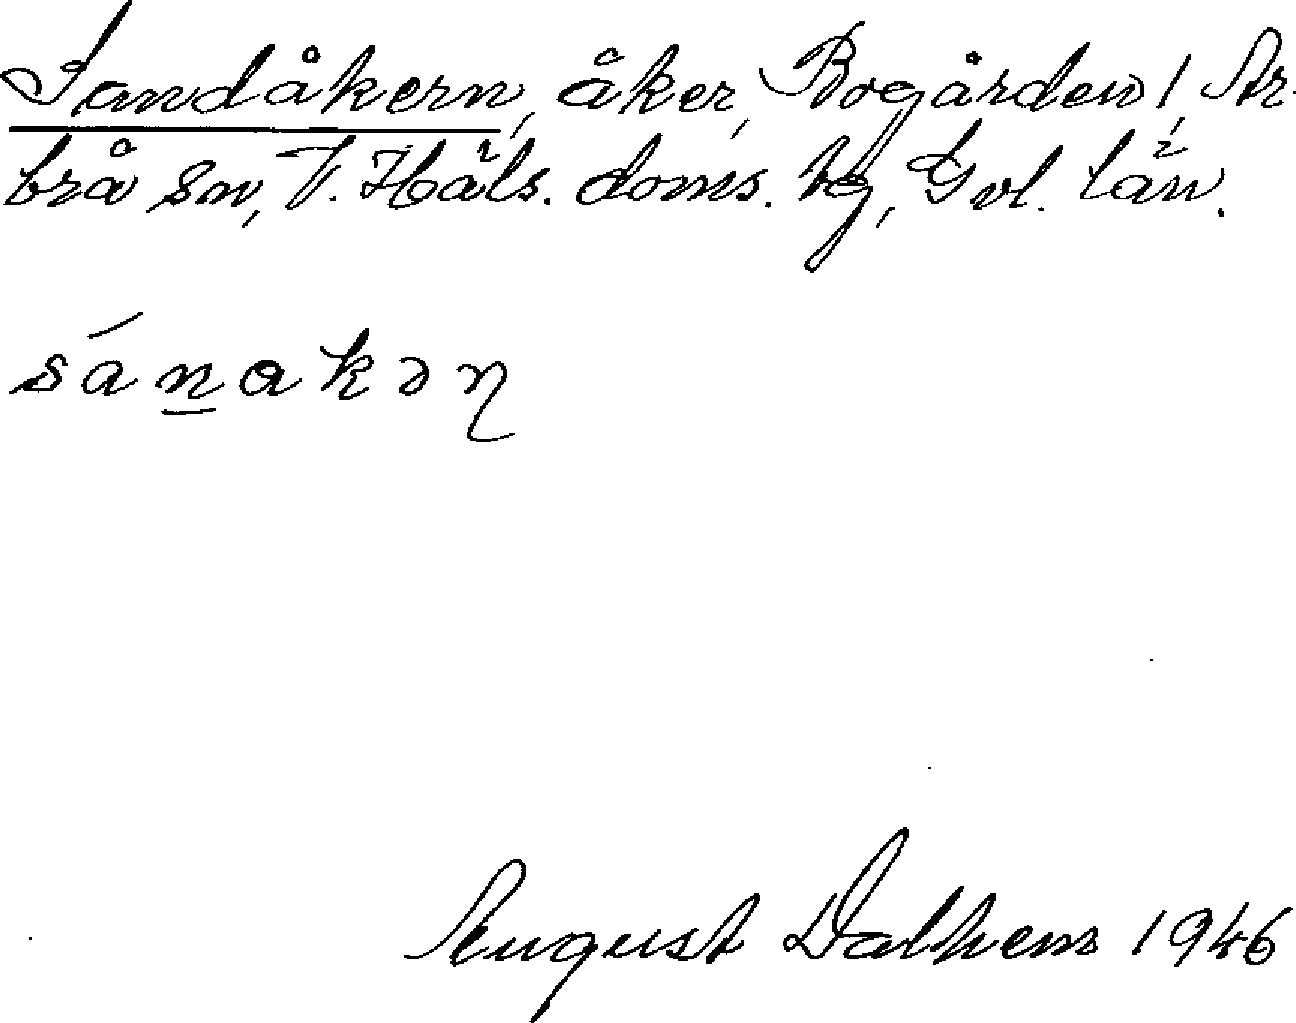 Sandåkern, åker, Bogården 1, Ar-
brå sn, V. Häls. doms. hg, Gvl. län.
sánakəŋ
August Dalhem 1946